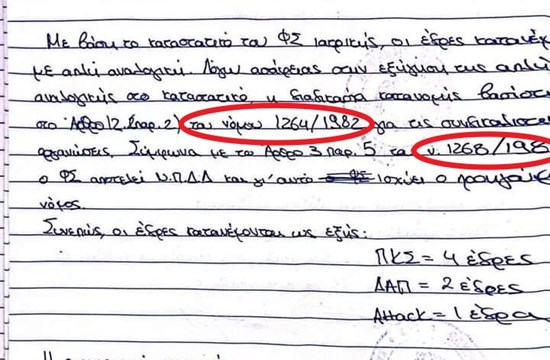 Με βάση το καταστατικό του ΦΣ Ιατρικής, οι έδρες κατανέμ
με απλή αναλογική. Λόγω ασάφειας στην εξήγηση της απλή
αναλογικής στο καταστατικό, η διαδικασία κατανομής βασίστ
στο Άρθρο 12 παρ. 2) του νόμου 1264/1982 για τις συνδικαλιστ
οργανώσεις. Σύμφωνα με το Άρθρο 3 παρ. 5. του ν. 1268/198
ο ΦΣ αποτελεί Ν.Π.Δ.Δ και γι' αυτό ισχύει ο
νόμος.
Συνεπώς, οι έδρες κατανέμονται ως εξής:
ΠΚΣ = 4 έδρες
ΔΑΠ = 2 έδρες
Attack = 1 έδρα